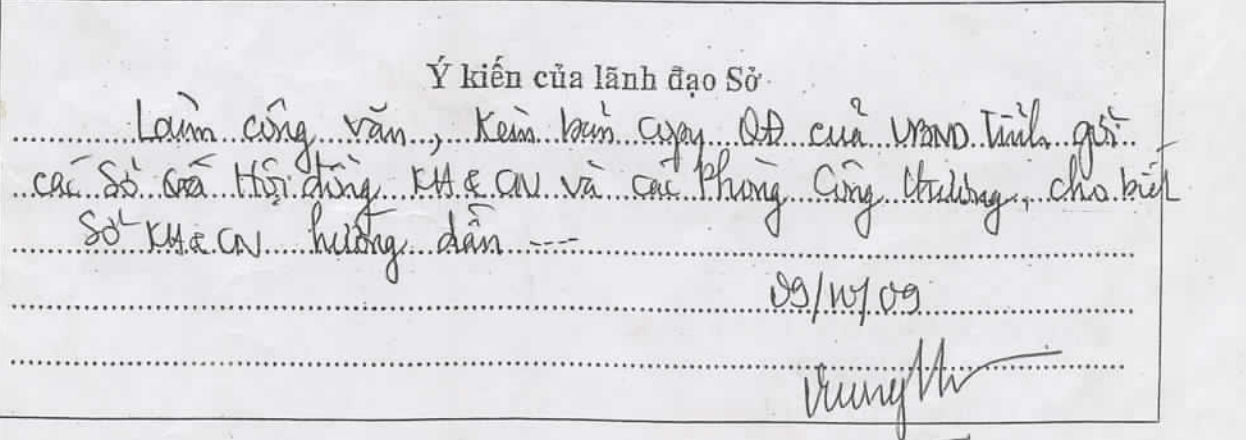 Ý kiến của lãnh đạo Sở
Làm công văn, kèm bản copy QĐ của UBND Tỉnh gửi
các Sở có Hội đồng KH & CN và các Phòng Công thương, cho biết
Sở KH & CN hướng dẫn ---
09/10/09